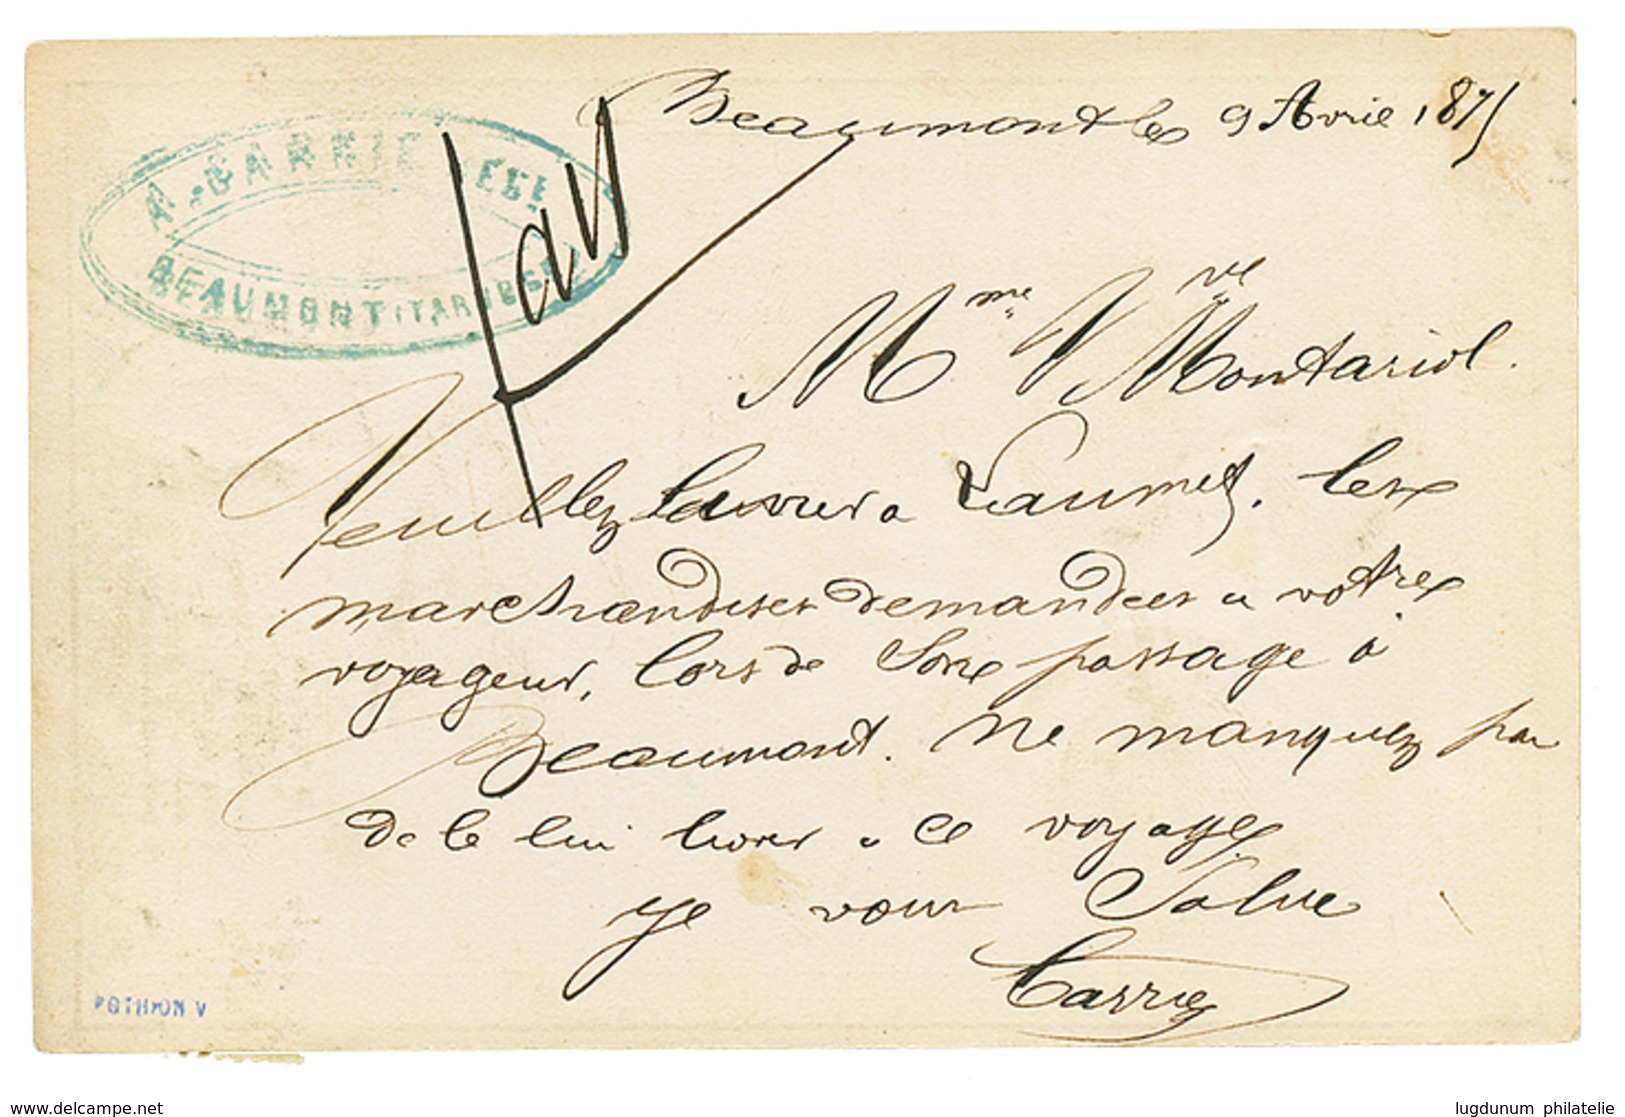 Beaumont le 9 Avril 1875
BEAUMONT (TARN
Mme Vve Montariol.
Veuillez livrer a Laumet. les
marchandises demandées a votre
voyageur, lors de Son passage à
Beaumont. Ne manquez pas
de le lui livrer a ce voyage
Je vous Salue
Carrie
POTHION V
delcampe.net
lugdunum philatelie